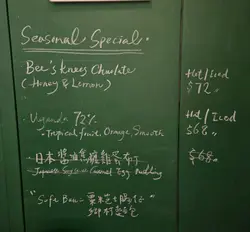 Seasonal Special.
Bee's Knees Choclate
(Honey & Lemon)
Hot/Iced
$72
Uganda 72%
Tropical fruit. Orange. Smooth
Hot/Iced
$68
日本醬油焦糖雞蛋布甸
Japanese Soy Sauce Caramel Egg Pudding
$68
"Soft Bean